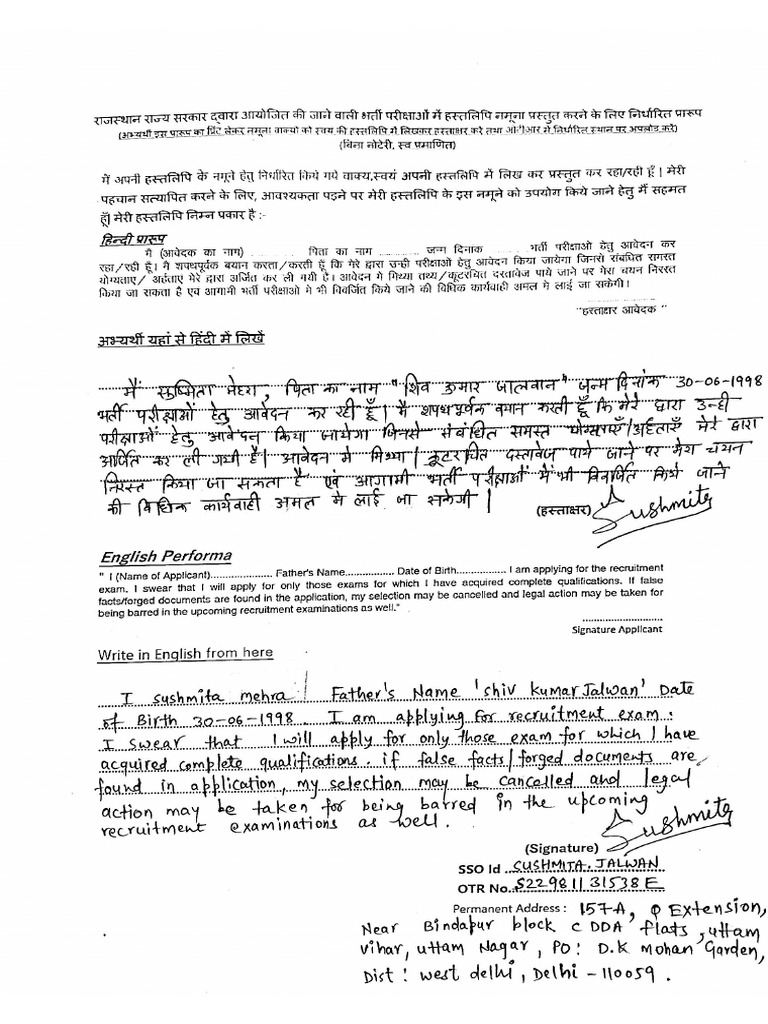 राजस्थान राज्य सरकार द्वारा आयोजित की जाने वाली भर्ती परीक्षाओं में हस्तलिपि नमूना प्रस्तुत करने के लिए निर्धारित प्रारूप
(अभ्यर्थी इस प्रारूप का प्रिंट लेकर नमूना वाक्यों को स्वयं की हस्तलिपि में लिखकर हस्ताक्षर करे तथा ओटीआर में निर्धारित स्थान पर अपलोड करे)
(बिना नोटेरी, स्व प्रमाणित)
मैं अपनी हस्तलिपि के नमूने हेतु निर्धारित किये गये वाक्य,स्वयं अपनी हस्तलिपि में लिख कर प्रस्तुत कर रहा/रही हूँ | मेरी
पहचान सत्यापित करने के लिए, आवश्यकता पड़ने पर मेरी हस्तलिपि के इस नमूने को उपयोग किये जाने हेतु मैं सहमत
हूँ| मेरी हस्तलिपि निम्न प्रकार है :-
हिन्दी प्रारूप
मै (आवेदक का नाम) .................. पिता का नाम .................. जन्म दिनाक .................. भर्ती परीक्षाओ हेतु आवेदन कर
रहा/रही हूँ। मै शपथपूर्वक बयान करता/करती हूँ कि मेरे द्वारा उन्ही परीक्षाओ हेतु आवेदन किया जायेगा जिनसे संबंधित समस्त
योग्यताए/ अर्हताए मेरे द्वारा अर्जित कर ली गयी है। आवेदन मे मिथ्या तथ्य/कूटरचित दस्तावेज पाये जाने पर मेरा चयन निरस्त
किया जा सकता है एव आगामी भर्ती परीक्षाओ मे भी विवर्जित किये जाने की विधिक कार्यवाही अमल मे लाई जा सकेगी।
"हस्ताक्षर आवेदक "
अभ्यर्थी यहां से हिंदी में लिखें
मैं सुष्मिता मेहरा, पिता का नाम "शिव कुमार जालवान" जन्म दिनांक 30-06-1998
भर्ती परीक्षाओं हेतु आवेदन कर रही हूँ | मै शपथपूर्वक बयान करती हूँ कि मेरे द्वारा उन्ही
परीक्षाओं हेतु आवेदन किया जायेगा जिनसे संबंधित समस्त योग्यताएँ/अर्हताएँ मेरे द्वारा
अर्जित कर ली गयी है | आवेदन मे मिथ्या | कूटरचित दस्तावेज पाये जाने पर मेरा चयन
निरस्त किया जा सकता है एवं आगामी भर्ती परीक्षाओं में भी विवर्जित किये जाने
की विधिक कार्यवाही अमल मे लाई जा सकेगी |
(हस्ताक्षर) Sushmita
English Performa
" I (Name of Applicant)..................... Father's Name................ Date of Birth................. I am applying for the recruitment
exam. I swear that I will apply for only those exams for which I have acquired complete qualifications. If false
facts/forged documents are found in the application, my selection may be cancelled and legal action may be taken for
being barred in the upcoming recruitment examinations as well."
Signature Applicant
Write in English from here
I sushmita mehra | Father's Name 'shiv kumar Jalwan' Date
of Birth 30-06-1998. I am applying for recruitment exam.
I swear that I will apply for only those exam for which I have
acquired complete qualifications. if false facts/forged documents are
found in application, my selection may be cancelled and legal
action may be taken for being barred in the upcoming
recruitment examinations as well.
Sushmita
(Signature)
SSO Id ..SUSHMITA.JALWAN
OTR No..S22981131538E
Permanent Address : 157-A, Q Extension,
Near Bindapur block c DDA flats, uttam
vihar, uttam Nagar, PO: D.K mohan Garden,
Dist: west delhi, Delhi - 110059.